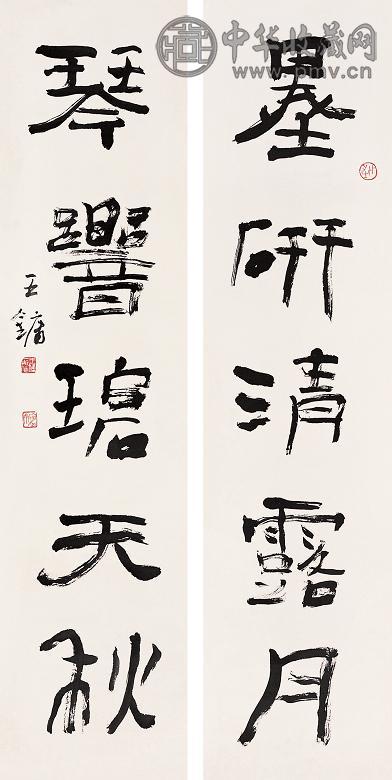 墨研清露月
琴響碧天秋
王鏞
中华收藏网
www.pmv.cn